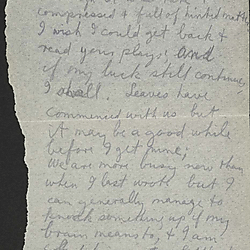 compressed & full of hinted matter
I wish I could get back &
read your plays, and
if my luck still continues
I shall. Leaves have
commenced with us but
it may be a good while
before I get mine.
We are more busy now than
when I last wrote but I
can generally manage to
knock something up if my
brain means to, & I am